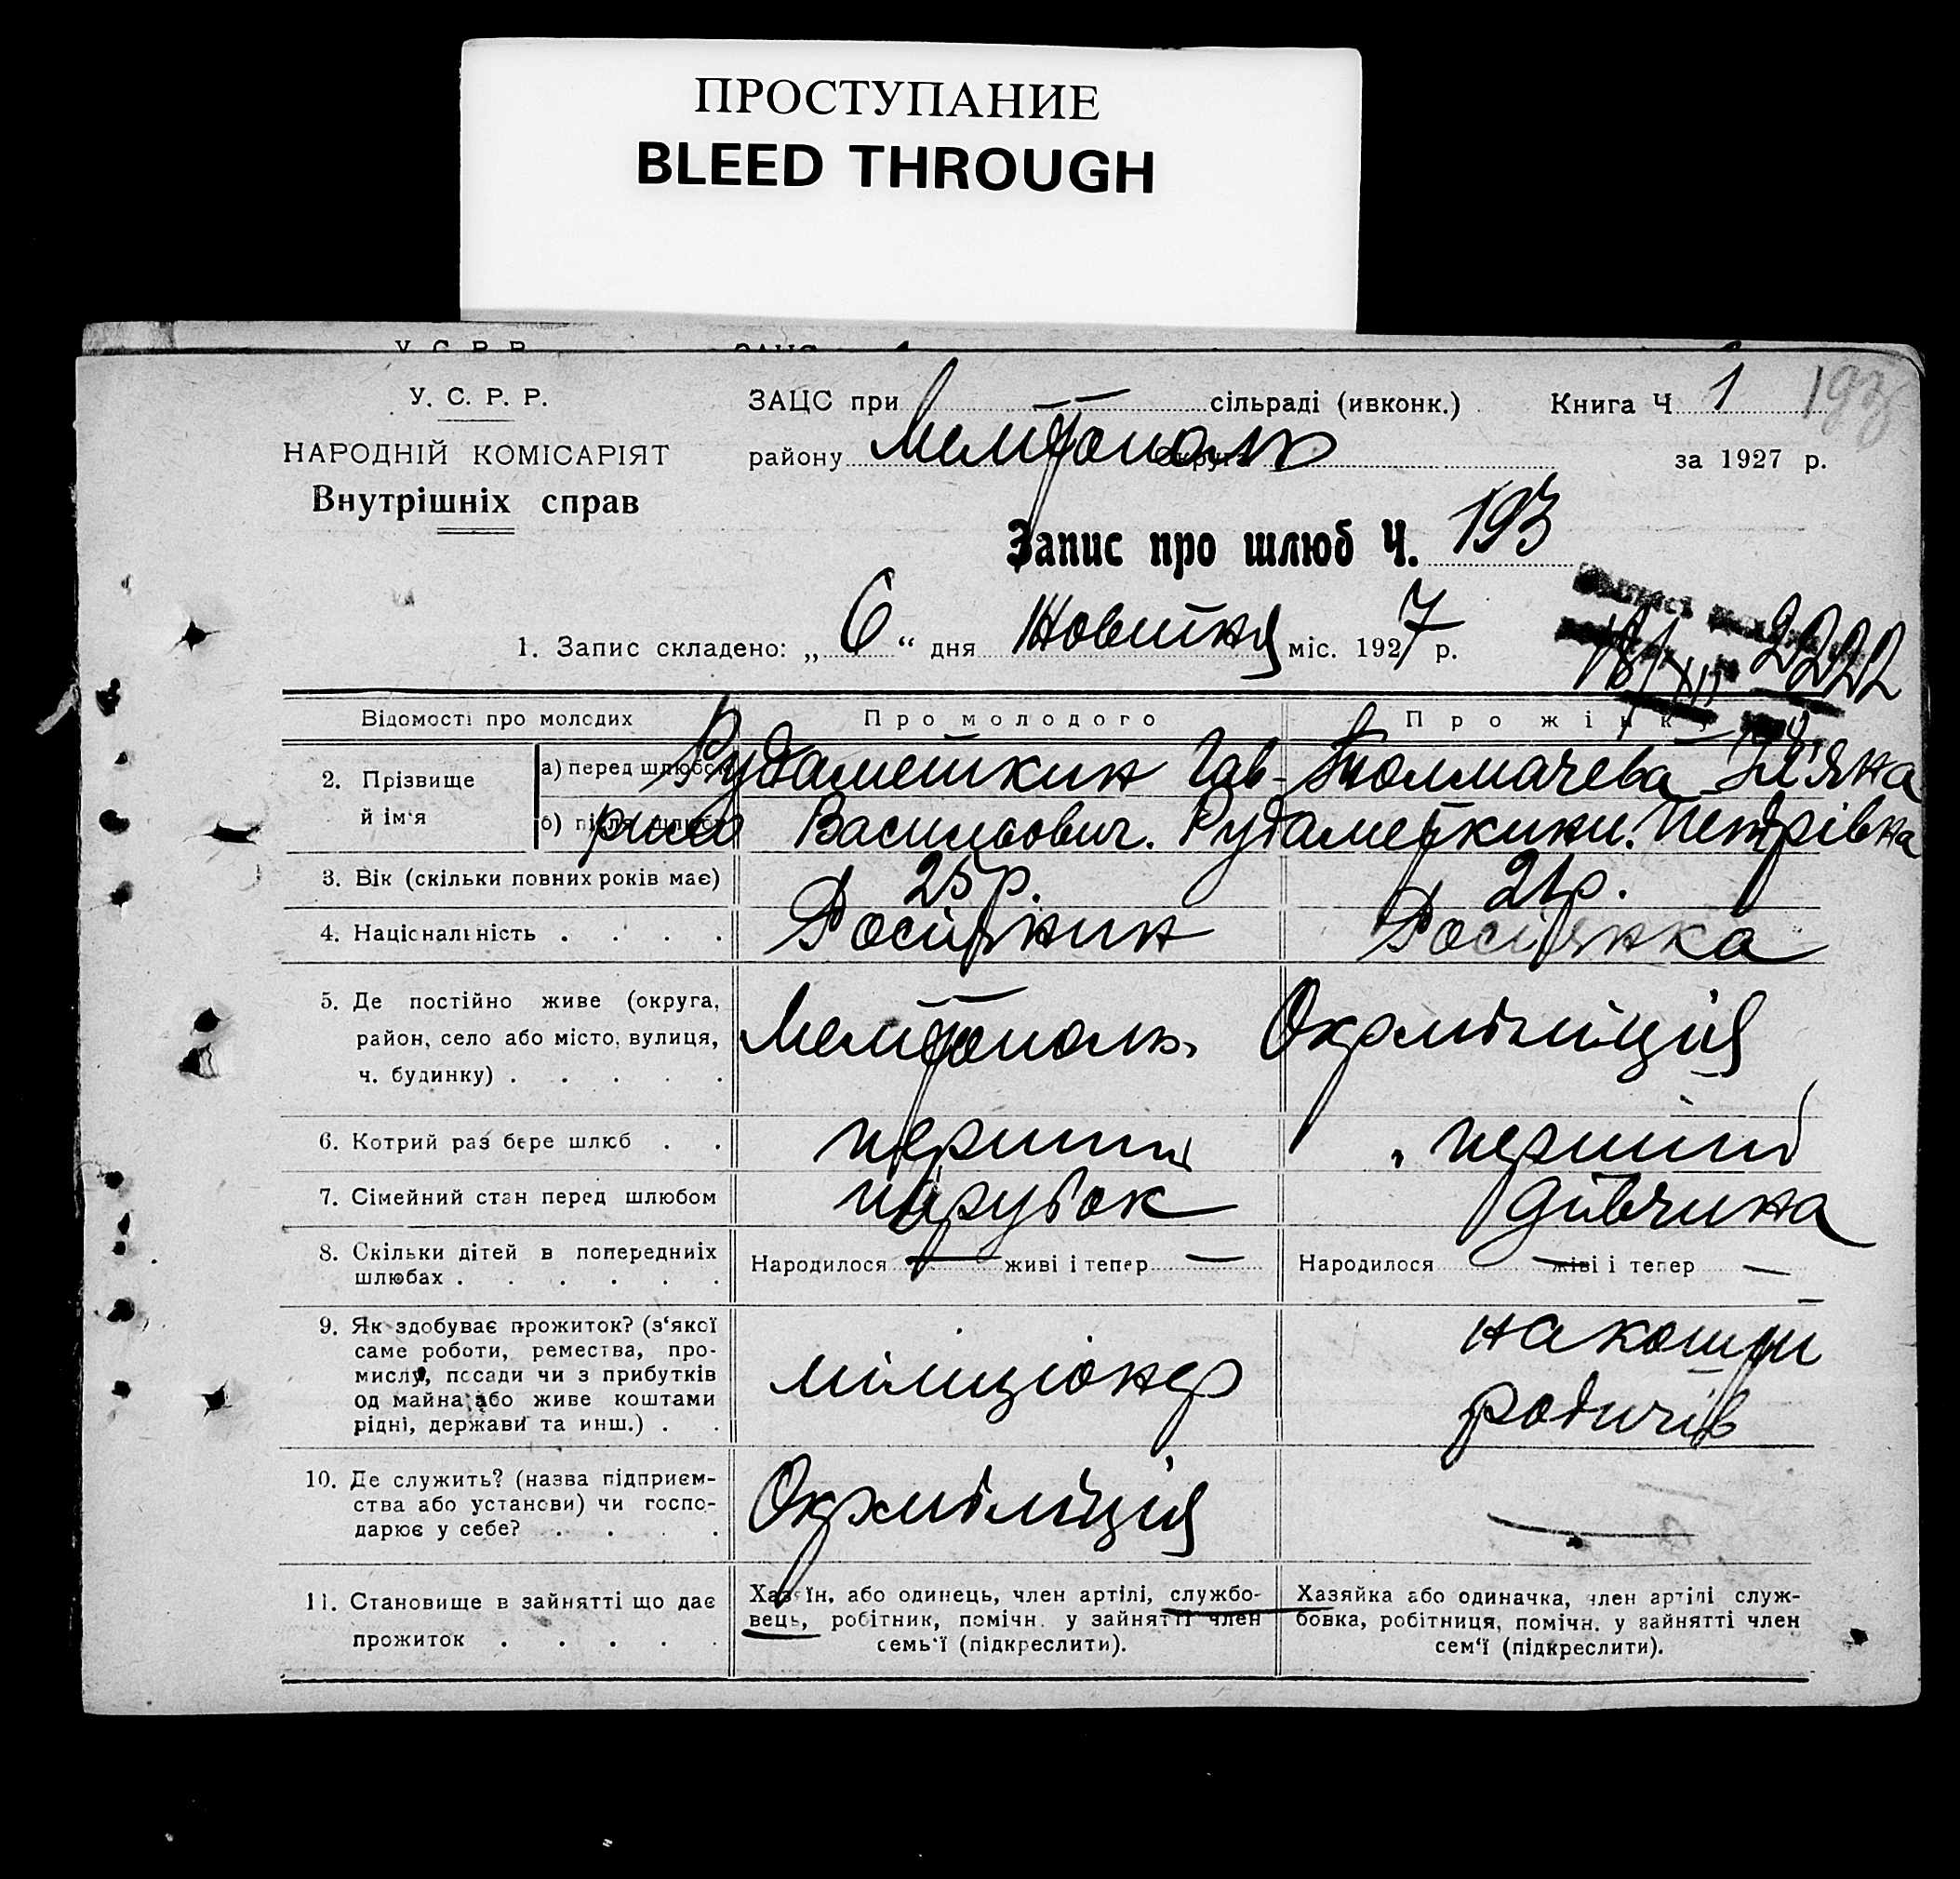 ПРОСТУПАНИЕ
BLEED THROUGH
У. С. Р. Р.
НАРОДНІЙ КОМІСАРІЯТ
Внутрішніх справ
ЗАЦС при сільраді (ивконк.)
Книга Ч 1
193
району Мелітополь
за 1927 р.
Запис про шлюб Ч. 193
1. Запис складено: „ 6 “ дня Новитня міс. 1927 р.
2222
Відомості про молодих
Про молодого
Про жінку
2. Прізвище й ім'я
а) перед шлюбом
Рудаметкин Гав-
Толмачева
б) після шлюбу
рило Васильович.
Рудаметкини. Петрівна
3. Вік (скільки повних років має)
25 р.
21 р.
4. Національність . . . .
Росіянин
Росіянка
5. Де постійно живе (округа,
район, село або місто, вулиця,
ч. будинку) . . . . .
Мелітополь,
Окрміліція
6. Котрий раз бере шлюб . .
перший
перший
7. Сімейний стан перед шлюбом
парубок
дівчина
8. Скільки дітей в попередниіх
шлюбах . . . . . .
Народилося — живі і тепер —
Народилося — живі і тепер —
9. Як здобуває прожиток? (з'якої
саме роботи, ремества, про-
мислу, посади чи з прибутків
од майна або живе коштами
рідні, держави та инш.) . .
міліціонер
на кошти
родичів
10. Де служить? (назва підприєм-
ства або установи) чи госпо-
дарює у себе? . . . .
Окрміліція
—
11. Становище в зайнятті що дає
прожиток . . . . .
Хазяїн, або одинець, член артілі, службо-
вець, робітник, помічн. у зайнятті член
семь'ї (підкреслити).
Хазяйка або одиначка, член артілі служ-
бовка, робітниця, помічн. у зайнятті член
сем'ї (підкреслити).